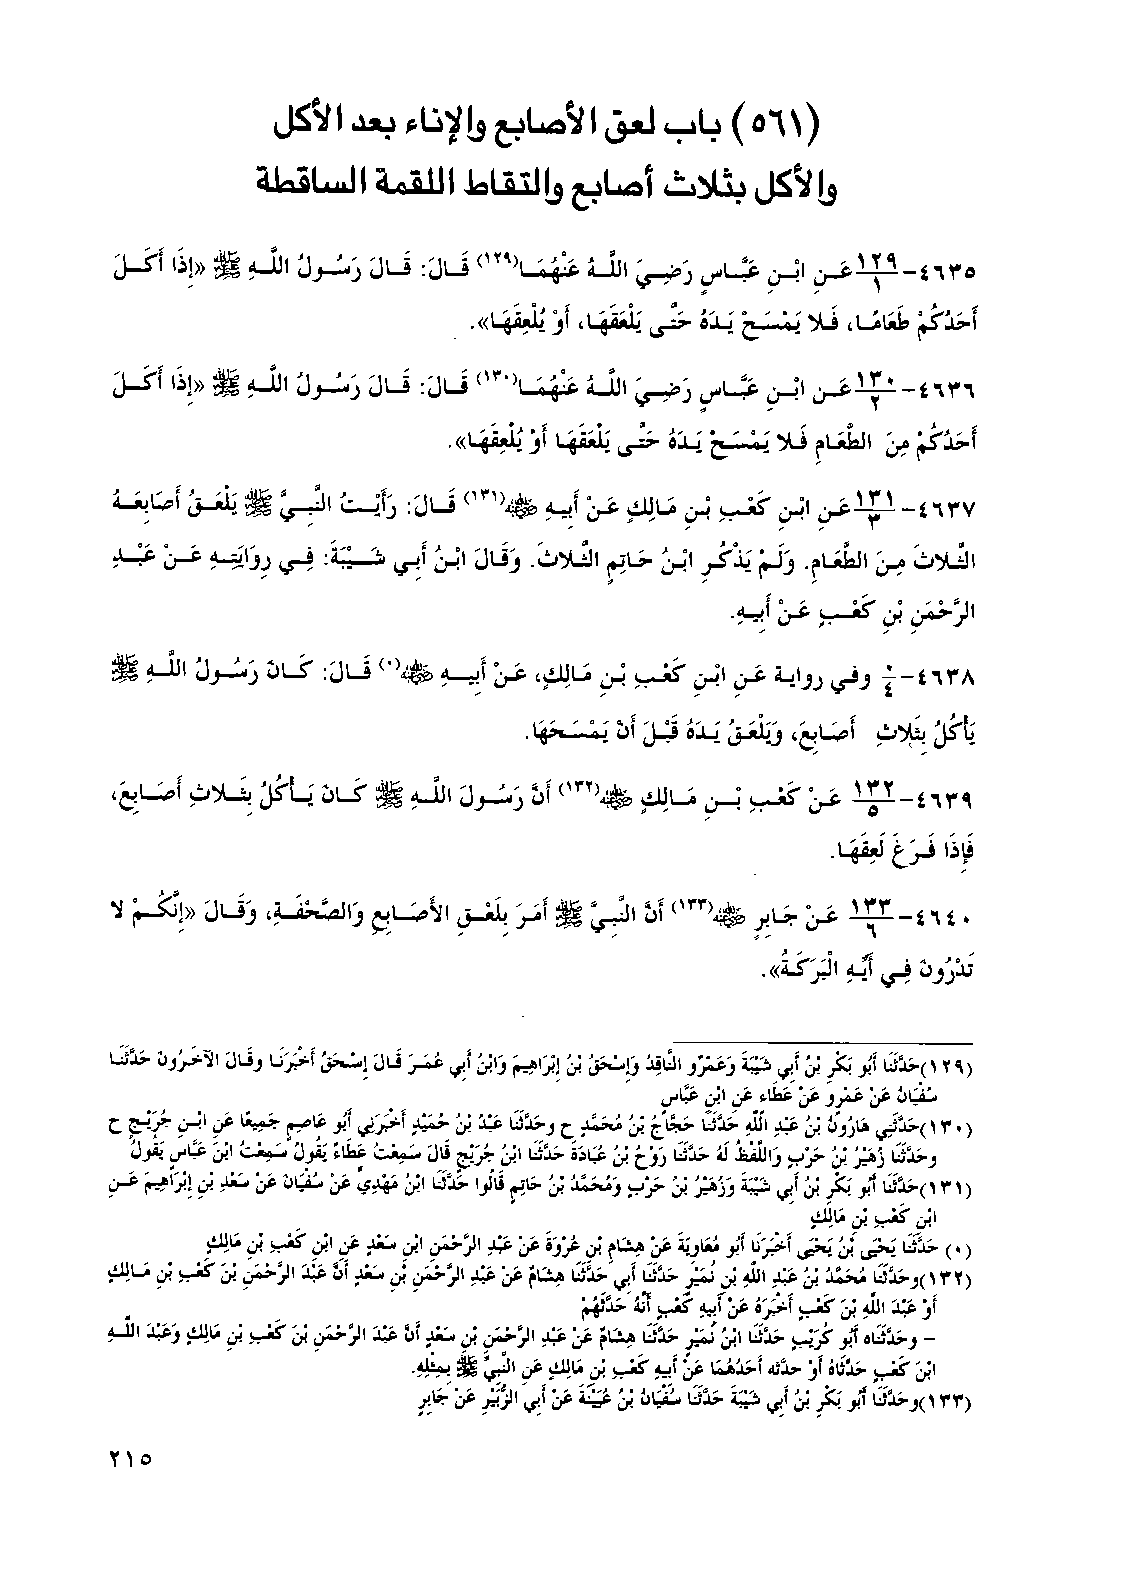 (٥٦١) باب لعق الأصابع والإناء بعد الأكل
والأكل بثلاث أصابع والتقاط اللقمة الساقطة
٤٦٣٥- ١٢٩/١ عَنِ ابْنِ عَبَّاسٍ رَضِيَ اللَّهُ عَنْهُمَا(١٢٩) قَالَ: قَالَ رَسُولُ اللَّهِ ﷺ «إِذَا أَكَلَ
أَحَدُكُمْ طَعَامًا، فَلا يَمْسَحْ يَدَهُ حَتَّى يَلْعَقَهَا، أَوْ يُلْعِقَهَا».
٤٦٣٦- ١٣٠/٢ عَنِ ابْنِ عَبَّاسٍ رَضِيَ اللَّهُ عَنْهُمَا(١٣٠) قَالَ: قَالَ رَسُولُ اللَّهِ ﷺ «إِذَا أَكَلَ
أَحَدُكُمْ مِنَ الطَّعَامِ فَلا يَمْسَحْ يَدَهُ حَتَّى يَلْعَقَهَا أَوْ يُلْعِقَهَا».
٤٦٣٧- ١٣١/٣ عَنِ ابْنِ كَعْبِ بْنِ مَالِكٍ عَنْ أَبِيهِ ﷺ(١٣١) قَالَ: رَأَيْتُ النَّبِيَّ ﷺ يَلْعَقُ أَصَابِعَهُ
الثَّلاثَ مِنَ الطَّعَامِ. وَلَمْ يَذْكُرِ ابْنُ حَاتِمٍ الثَّلاثَ. وَقَالَ ابْنُ أَبِي شَيْبَةَ: فِي رِوَايَتِهِ عَنْ عَبْدِ
الرَّحْمَنِ بْنِ كَعْبٍ عَنْ أَبِيهِ.
٤٦٣٨- ٠/٤ وفي رواية عَنِ ابْنِ كَعْبِ بْنِ مَالِكٍ، عَنْ أَبِيهِ ﷺ(٠) قَالَ: كَانَ رَسُولُ اللَّهِ ﷺ
يَأْكُلُ بِثَلاثِ أَصَابِعَ، وَيَلْعَقُ يَدَهُ قَبْلَ أَنْ يَمْسَحَهَا.
٤٦٣٩- ١٣٢/٥ عَنْ كَعْبِ بْنِ مَالِكٍ ﷺ(١٣٢) أَنَّ رَسُولَ اللَّهِ ﷺ كَانَ يَأْكُلُ بِثَلاثِ أَصَابِعَ،
فَإِذَا فَرَغَ لَعِقَهَا.
٤٦٤٠- ١٣٣/٦ عَنْ جَابِرٍ ﷺ(١٣٣) أَنَّ النَّبِيَّ ﷺ أَمَرَ بِلَعْقِ الأَصَابِعِ وَالصَّحْفَةِ، وَقَالَ «إِنَّكُمْ لا
تَدْرُونَ فِي أَيِّهِ الْبَرَكَةُ».
(١٢٩)حَدَّثَنَا أَبُو بَكْرِ بْنُ أَبِي شَيْبَةَ وَعَمْرٌو النَّاقِدُ وَإِسْحَقُ بْنُ إِبْرَاهِيمَ وَابْنُ أَبِي عُمَرَ قَالَ إِسْحَقُ أَخْبَرَنَا وقَالَ الآخَرُونَ حَدَّثَنَا
سُفْيَانُ عَنْ عَمْرٍو عَنْ عَطَاءٍ عَنِ ابْنِ عَبَّاسٍ
(١٣٠)حَدَّثَنِي هَارُونُ بْنُ عَبْدِ اللَّهِ حَدَّثَنَا حَجَّاجُ بْنُ مُحَمَّدٍ ح وحَدَّثَنَا عَبْدُ بْنُ حُمَيْدٍ أَخْبَرَنِي أَبُو عَاصِمٍ جَمِيعًا عَنِ ابْنِ جُرَيْجٍ ح
وحَدَّثَنَا زُهَيْرُ بْنُ حَرْبٍ وَاللَّفْظُ لَهُ حَدَّثَنَا رَوْحُ بْنُ عُبَادَةَ حَدَّثَنَا ابْنُ جُرَيْجٍ قَالَ سَمِعْتُ عَطَاءً يَقُولُ سَمِعْتُ ابْنَ عَبَّاسٍ يَقُولُ
(١٣١)حَدَّثَنَا أَبُو بَكْرِ بْنُ أَبِي شَيْبَةَ وَزُهَيْرُ بْنُ حَرْبٍ وَمُحَمَّدُ بْنُ حَاتِمٍ قَالُوا حَدَّثَنَا ابْنُ مَهْدِيٍّ عَنْ سُفْيَانَ عَنْ سَعْدِ بْنِ إِبْرَاهِيمَ عَنِ
ابْنِ كَعْبِ بْنِ مَالِكٍ
(٠) حَدَّثَنَا يَحْيَى بْنُ يَحْيَى أَخْبَرَنَا أَبُو مُعَاوِيَةَ عَنْ هِشَامِ بْنِ عُرْوَةَ عَنْ عَبْدِ الرَّحْمَنِ ابْنِ سَعْدٍ عَنِ ابْنِ كَعْبِ بْنِ مَالِكٍ
(١٣٢)وحَدَّثَنَا مُحَمَّدُ بْنُ عَبْدِ اللَّهِ بْنِ نُمَيْرٍ حَدَّثَنَا أَبِي حَدَّثَنَا هِشَامٌ عَنْ عَبْدِ الرَّحْمَنِ بْنِ سَعْدٍ أَنَّ عَبْدَ الرَّحْمَنِ بْنَ كَعْبِ بْنِ مَالِكٍ
أَوْ عَبْدَ اللَّهِ بْنَ كَعْبٍ أَخْبَرَهُ عَنْ أَبِيهِ كَعْبٍ أَنَّهُ حَدَّثَهُمْ
- وحَدَّثَنَاه أَبُو كُرَيْبٍ حَدَّثَنَا ابْنُ نُمَيْرٍ حَدَّثَنَا هِشَامٌ عَنْ عَبْدِ الرَّحْمَنِ بْنِ سَعْدٍ أَنَّ عَبْدَ الرَّحْمَنِ بْنَ كَعْبِ بْنِ مَالِكٍ وَعَبْدَ اللَّهِ
ابْنَ كَعْبٍ حَدَّثَاهُ أَوْ حدثه أَحَدُهُمَا عَنْ أَبِيهِ كَعْبِ بْنِ مَالِكٍ عَنِ النَّبِيِّ ﷺ بِمِثْلِهِ.
(١٣٣)وحَدَّثَنَا أَبُو بَكْرِ بْنُ أَبِي شَيْبَةَ حَدَّثَنَا سُفْيَانُ بْنُ عُيَيْنَةَ عَنْ أَبِي الزُّبَيْرِ عَنْ جَابِرٍ
٢١٥